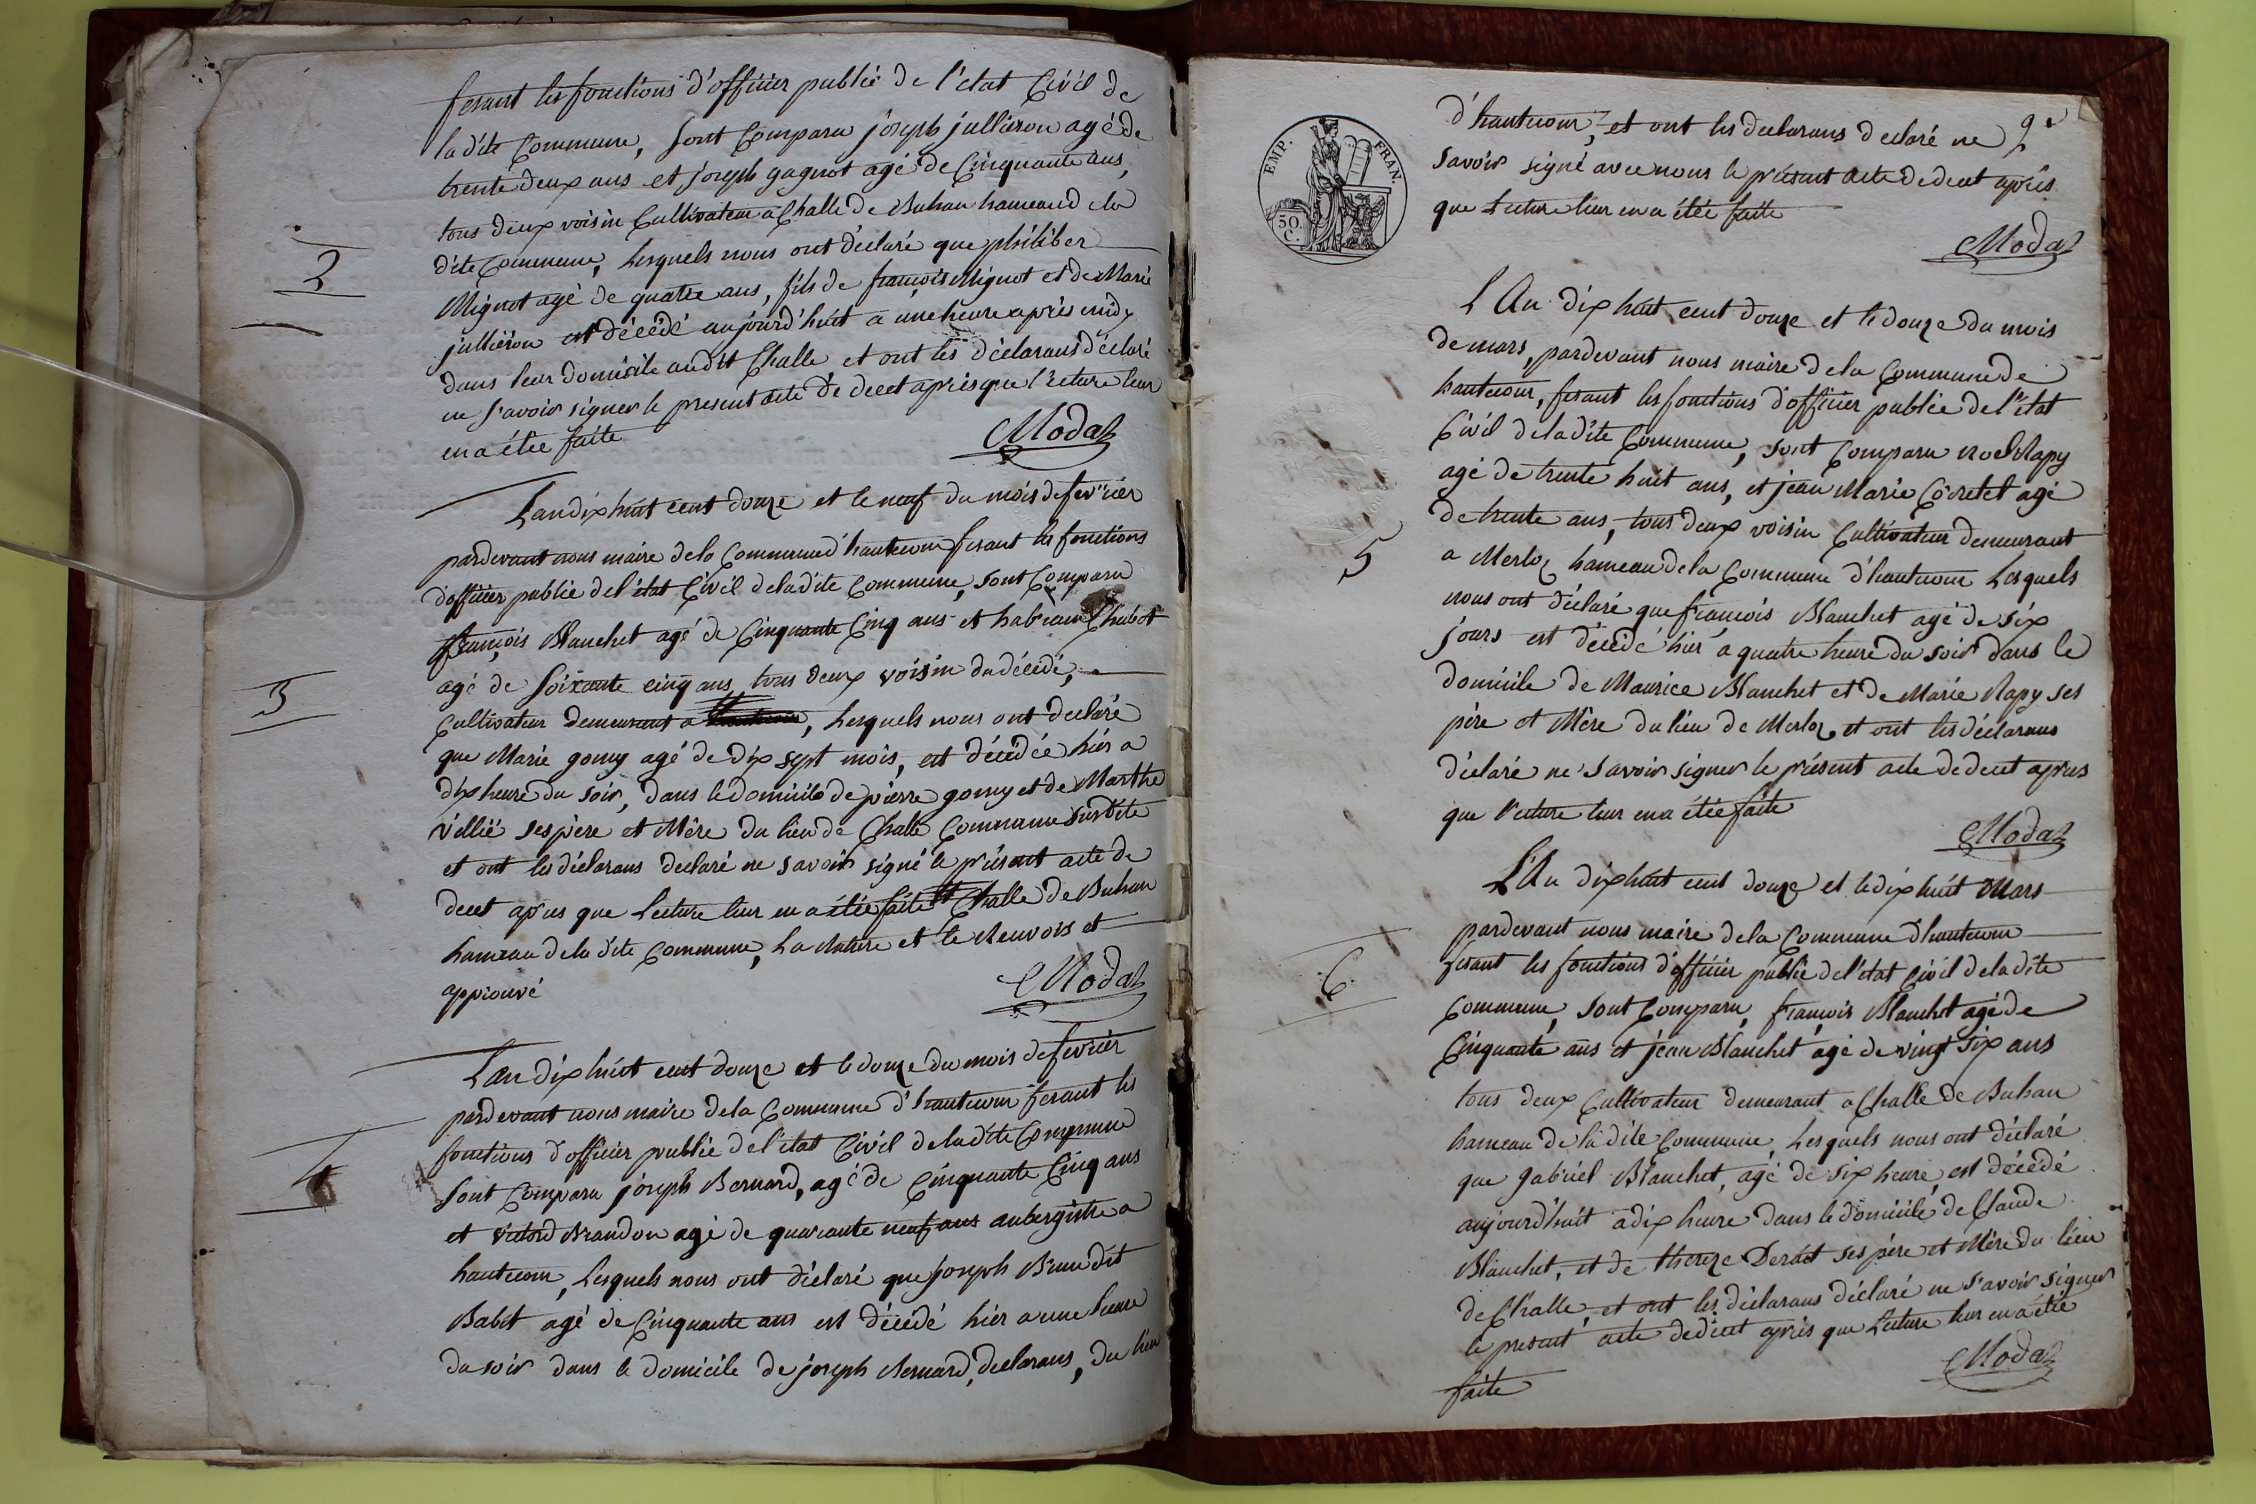 fesant les fonctions d'officier publié de l'état Civil de
la dite Commune, sont Comparu joseph jullieron agé de
trente deux ans et joseph gagnot agé de Cinquante ans,
tous deux voisin Cultivateur a Challe de Buhan hameau de la
dite Commune, Lesquels nous ont déclaré que philiber
2
Mignot agé de quatre ans, fils de françois Mignot et de Marie
jullieron est décédé aujourd'huit a une heure après midy
dans leur domicile audit Challe et ont les déclarans déclaré
ne savoir signer le present acte de decet après que lecture leur
en a étée faite
Modas
L'an dix huit cent douze et le neuf du mois de fevrier
pardevant nous maire de la Commune d'hautecour fesant les fonctions
d'officier publié de l'état Civil de la dite Commune, sont Comparu
françois Blanchet agé de Cinquante Cinq ans et Chabot
agé de soixante cinq ans, tous deux voisin du décédé,
3
Cultivateur demeurant a , Lesquels nous ont déclaré
que Marie gomy agé de dix sept mois, est décédée hiér a
dix heure du soir, dans le domicile de pierre gomy et de Marthe
villié ses père et Mère du lieu de Challe Commune susdite
et ont les déclarans declaré ne savoir signé le présent acte de
decet après que Lecture leur en a étée faite Challe de Buhan
hameau de la dite Commune, La Rature et le Renvois et
approuvé
Modas
L'an dix huit cent douze et le douze du mois de fevrier
pardevant nous maire de la Commune d'hautecour fesant les
fonctions d'officier publié de l'état Civil de la dite Commune
4
sont Comparu joseph Bernard, agé de Cinquante Cinq ans
et victord Brandon agé de quarante neuf ans aubergiste a
hautecour, Lesquels nous ont déclaré que joseph Brun dit
Babet agé de Cinquante ans est décédé hier a une heure
du soir dans le domicile de joseph Bernard, declarans, du lieu
EMP. FRAN.
50 C.
2e
d'hautecour, et ont les declarans declaré ne
savoir signé avec nous le présant acte de decet après
que Lecture leur en a étée faite
Modas
L'An dix huit cent douze et le douze du mois
de mars, pardevant nous maire de la Commune de
hautecour, fesant les fonctions d'officier publié de l'état
Civil de la dite Commune, sont Comparu noel Rapy
agé de trente huit ans, et jean Marie Coretet agé
de trente ans, tous deux voisin Cultivateur demeurant
5
a Merloz hameau de la Commune d'hautecour Lesquels
nous ont déclaré que françois Blanchet agé de six
jours est décédé hier a quatre heure du soir dans le
domicile de Maurice Blanchet et de Marie Rapy ses
père et Mère du lieu de Merloz et ont les déclarans
déclaré ne savoir signer le présent acte de decet après
que lecture leur en a étée faite
Modas
L'An dix huit cent douze et le dix huit Mars
pardevant nous maire de la Commune d'hautecour
fesant les fonctions d'officier publié de l'état Civil de la dite
6
Commune, sont Comparu, françois Blanchet agé de
Cinquante ans et jean Blanchet agé de vingt six ans
tous deux Cultivateur demeurant a Challe de Buhan
hameau de la dite Commune, Lesquels nous ont déclaré
que gabriel Blanchet, agé de six heure, est décédé
aujourd'huit a dix heure dans le domicile de Claude
Blanchet, et de thereze Deroct ses père et Mère du lieu
de Challe, et ont les déclarans déclaré ne savoir signer
le present acte de decet après que Lecture leur en a étée
faite
Modas